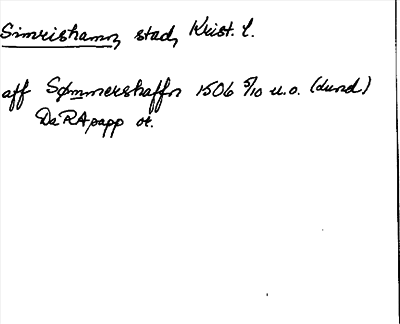 Simrishamn, stad, Krist. l.
aff Sømmershaffn 1506 5/10 u.o. (Lund)
Da RA papp or.